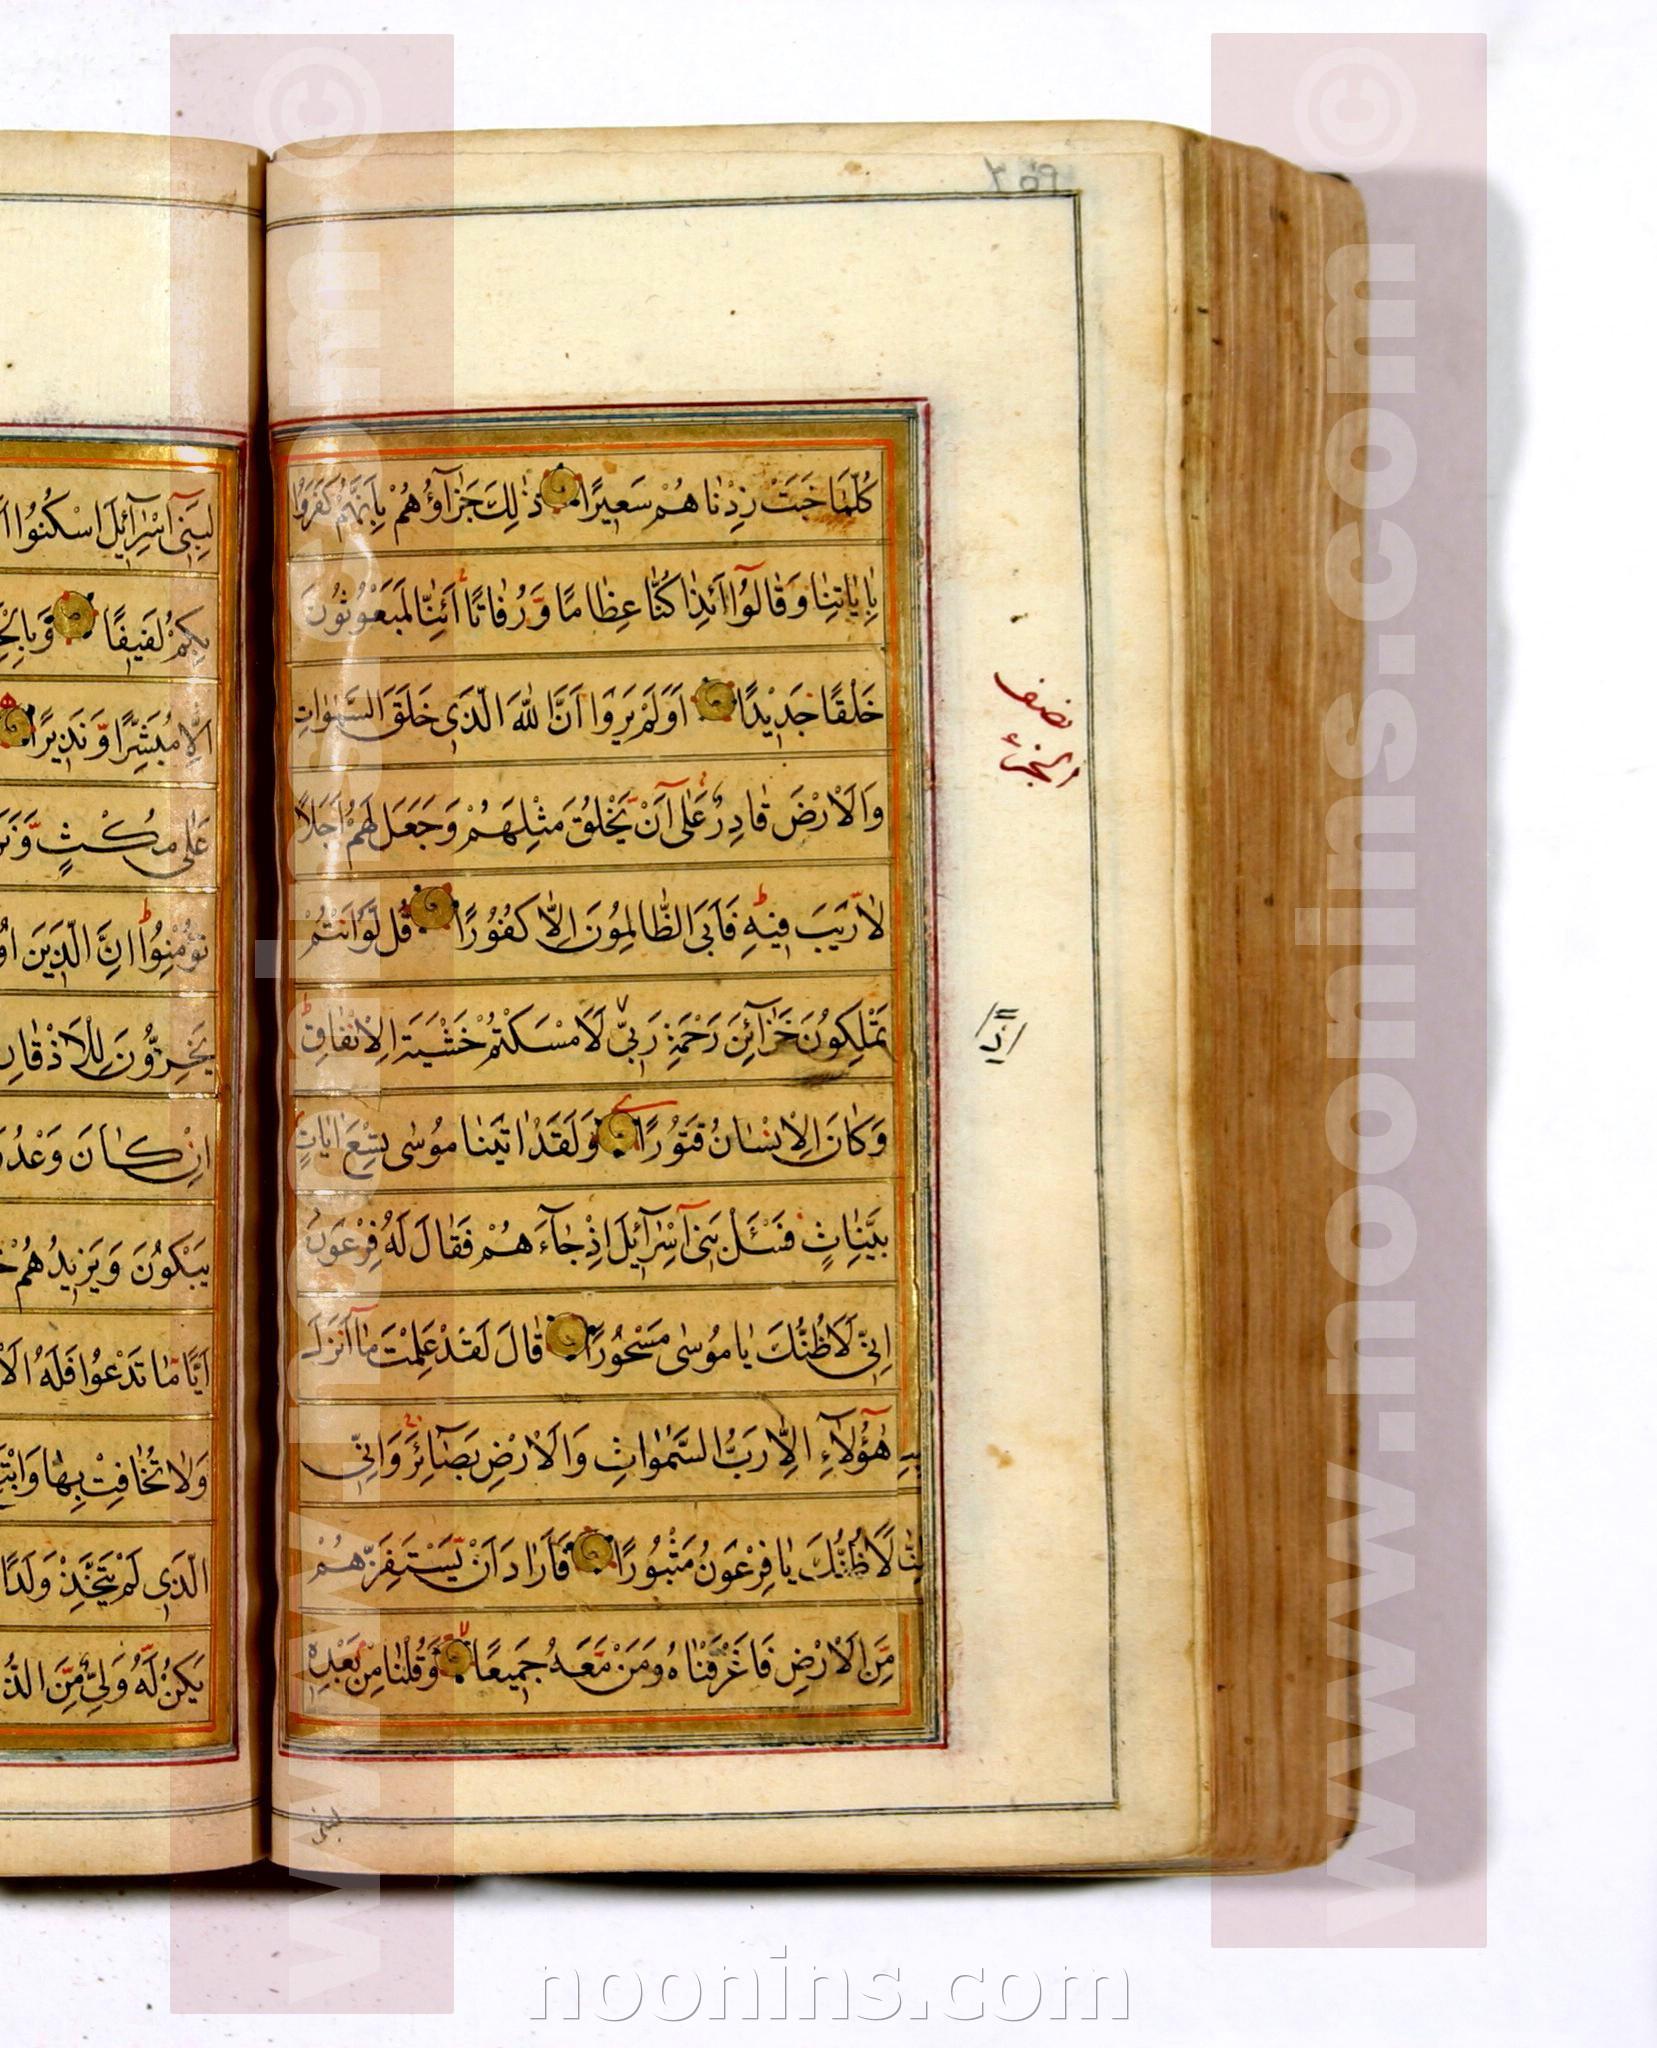 كُلَّمَا خَبَتْ زِدْنَا هُمْ سَعِيرًا ذٰلِكَ جَزَآؤُهُمْ بِاَنَّهُمْ كَفَرُوا
بِاٰيٰاتِنٰا وَقٰالُوٓا اَئِذٰا كُنّٰا عِظٰامًا وَّرُفٰاتًا اَئِنّٰا لَمَبْعُوثُونَ
خَلْقًا جَدِيْدًا اَوَلَمْ يَرَوْا اَنَّ اللّٰهَ الَّذِي خَلَقَ السَّمٰوٰاتِ
وَالْاَرْضَ قٰادِرٌ عَلٰى اَنْ يَّخْلُقَ مِثْلَهُمْ وَجَعَلَ لَهُمْ اَجَلًا
لٰا رَيْبَ فِيهِ فَاَبَى الظّٰالِمُونَ اِلّٰا كُفُورًا قُلْ لَّوْ اَنْتُمْ
تَمْلِكُونَ خَزٰآئِنَ رَحْمَةِ رَبِّي لَاَمْسَكْتُمْ خَشْيَةَ الْاِنْفٰاقِ
وَكٰانَ الْاِنْسٰانُ قَتُورًا وَلَقَدْ اٰتَيْنٰا مُوسٰى تِسْعَ اٰيٰاتٍ
بَيِّنٰاتٍ فَسْئَلْ بَنِيٓ اِسْرٰآئِيلَ اِذْ جٰآءَهُمْ فَقٰالَ لَهُ فِرْعَوْنُ
اِنِّي لَاَظُنُّكَ يٰا مُوسٰى مَسْحُورًا قٰالَ لَقَدْ عَلِمْتَ مٰٓا اَنْزَلَ
هٰٓؤُلَآءِ اِلّٰا رَبُّ السَّمٰوٰاتِ وَالْاَرْضِ بَصٰآئِرَ وَاِنِّي
لَاَظُنُّكَ يٰا فِرْعَوْنُ مَثْبُورًا فَاَرٰادَ اَنْ يَّسْتَفِزَّهُمْ
مِّنَ الْاَرْضِ فَاَغْرَقْنٰاهُ وَمَنْ مَّعَهُ جَمِيعًا وَقُلْنٰا مِنْ بَعْدِهِ
نصف
الجزء
لبنى
لِبَنِيٓ اِسْرٰآئِيلَ اسْكُنُوا
بِكُمْ لَفِيفًا
اِلّٰا مُبَشِّرًا وَّنَذِيرًا
عَلٰى مُكْثٍ
تُؤْمِنُوا اِنَّ الَّذِينَ
يَخِرُّونَ لِلْاَذْقٰانِ
اِنْ كٰانَ وَعْدُ
يَبْكُونَ وَيَزِيدُهُمْ
اَيًّا مٰا تَدْعُوا فَلَهُ
وَلٰا تُخٰافِتْ بِهٰا
الَّذِي لَمْ يَتَّخِذْ وَلَدًا
يَكُنْ لَّهُ وَلِيٌّ مِّنَ
www.noonins.com ©
www.noonins.com ©
noonins.com